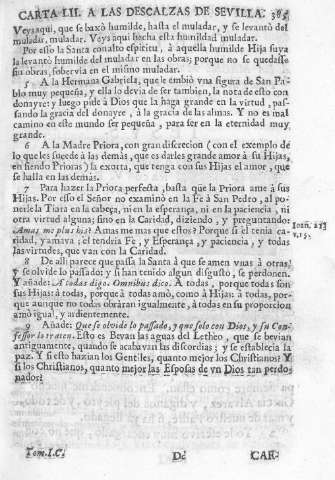 CARTA LII. A LAS DESCALZAS DE SEVILLA. 385
Veysaqui, que se baxò humilde, hasta el muladar, y se levantò del
muladar, muladar. Veysaqui hecha esta humildad muladar.
Por esso la Santa con alto espiritu, à aquella humilde Hija suya
la levantò humilde del muladar en las obras; porque no se quedasse
sus obras, sobervia en el mismo muladar.
5 A la Hermana Gabriela, que le embiò vna figura de San Pa-
blo muy pequeña, y ella lo devia de ser tambien, la nota de esto con
donayre: y luego pide à Dios que la haga grande en la virtud, pas-
sando la gracia del donayre, à la gracia de las almas. Y no es mal
camino en este mundo ser pequeña, para ser en la eternidad muy
grande.
6 A la Madre Priora, con gran discrecion (con el exemplo de
lo que les sucede à las demàs, que es darles grande amor à su Hijas,
en siendo Prioras) la exorta, que tenga con sus Hijas el amor, que
se halla en las demàs.
7 Para hazer la Priora perfecta, basta que la Priora ame à sus
Hijas. Por esso el Señor no examinò en la Fè à San Pedro, al po-
nerle la Tiara en la cabeça, ni en la esperança, ni en la paciencia, ni
otra virtud alguna; sino en la Caridad, diziendo, y preguntando:
Amas me plus his? Amas me mas que estos? Porque si el tenia ca-
ridad, y amava; el tendria Fè, y Esperança, y paciencia, y todas
las virtudes, que van con la Caridad.
Ioan. 21
v. 15.
8 De alli parece que passa la Santa à que se amen vnas à otras,
y se olvide lo passado: y si han tenido algun disgusto, se perdonen.
Y añade: A todas digo. Omnibus dico. A todas, porque todas son
sus Hijas: à todas, porque à todas amò, como à Hijas: à todas, por-
que aunque no todas obraràn igualmente, à todas en su proporcion
amò igual, y ardientemente.
9 Añade: Que se olvide lo passado, y que solo con Dios, y su Con-
fessor lo traten. Esto es Bevan las aguas del Letheo, que se bevian
antiguamente, quando se acabavan las discordias; y se establecia la
paz. Y si esto hazian los Gentiles, quanto mejor los Christianos? Y
si los Christianos, quanto mejor las Esposas de vn Dios tan perdo-
nador?
Tom.I.C.
CAR-